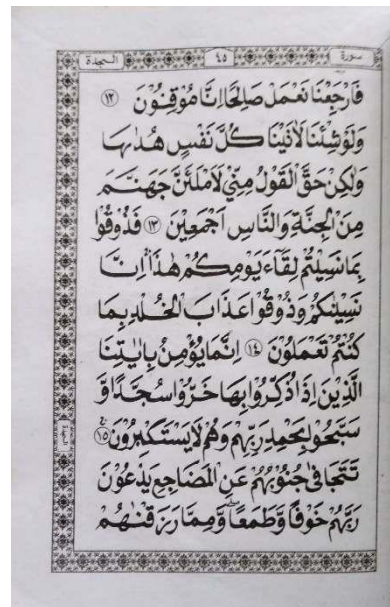 سورة ٤٥ السجدة
فَارْجِعْنَا نَعْمَلْ صَالِحًا اِنَّا مُوْقِنُوْنَ ١٢
وَلَوْ شِئْنَا لَاٰتَيْنَا كُلَّ نَفْسٍ هُدٰىهَا
وَلٰكِنْ حَقَّ الْقَوْلُ مِنِّيْ لَاَمْلَئَنَّ جَهَنَّمَ
مِنَ الْجِنَّةِ وَالنَّاسِ اَجْمَعِيْنَ ١٣ فَذُوْقُوْا
بِمَا نَسِيْتُمْ لِقَآءَ يَوْمِكُمْ هٰذَا اِنَّا
نَسِيْنٰكُمْ وَذُوْقُوْا عَذَابَ الْخُلْدِ بِمَا
كُنْتُمْ تَعْمَلُوْنَ ١٤ اِنَّمَا يُؤْمِنُ بِاٰيٰتِنَا
الَّذِيْنَ اِذَا ذُكِّرُوْا بِهَا خَرُّوْا سُجَّدًا وَّ
سَبَّحُوْا بِحَمْدِ رَبِّهِمْ وَهُمْ لَا يَسْتَكْبِرُوْنَ ١٥
تَتَجَافٰى جُنُوْبُهُمْ عَنِ الْمَضَاجِعِ يَدْعُوْنَ
رَبَّهُمْ خَوْفًا وَّطَمَعًا وَّمِمَّا رَزَقْنٰهُمْ